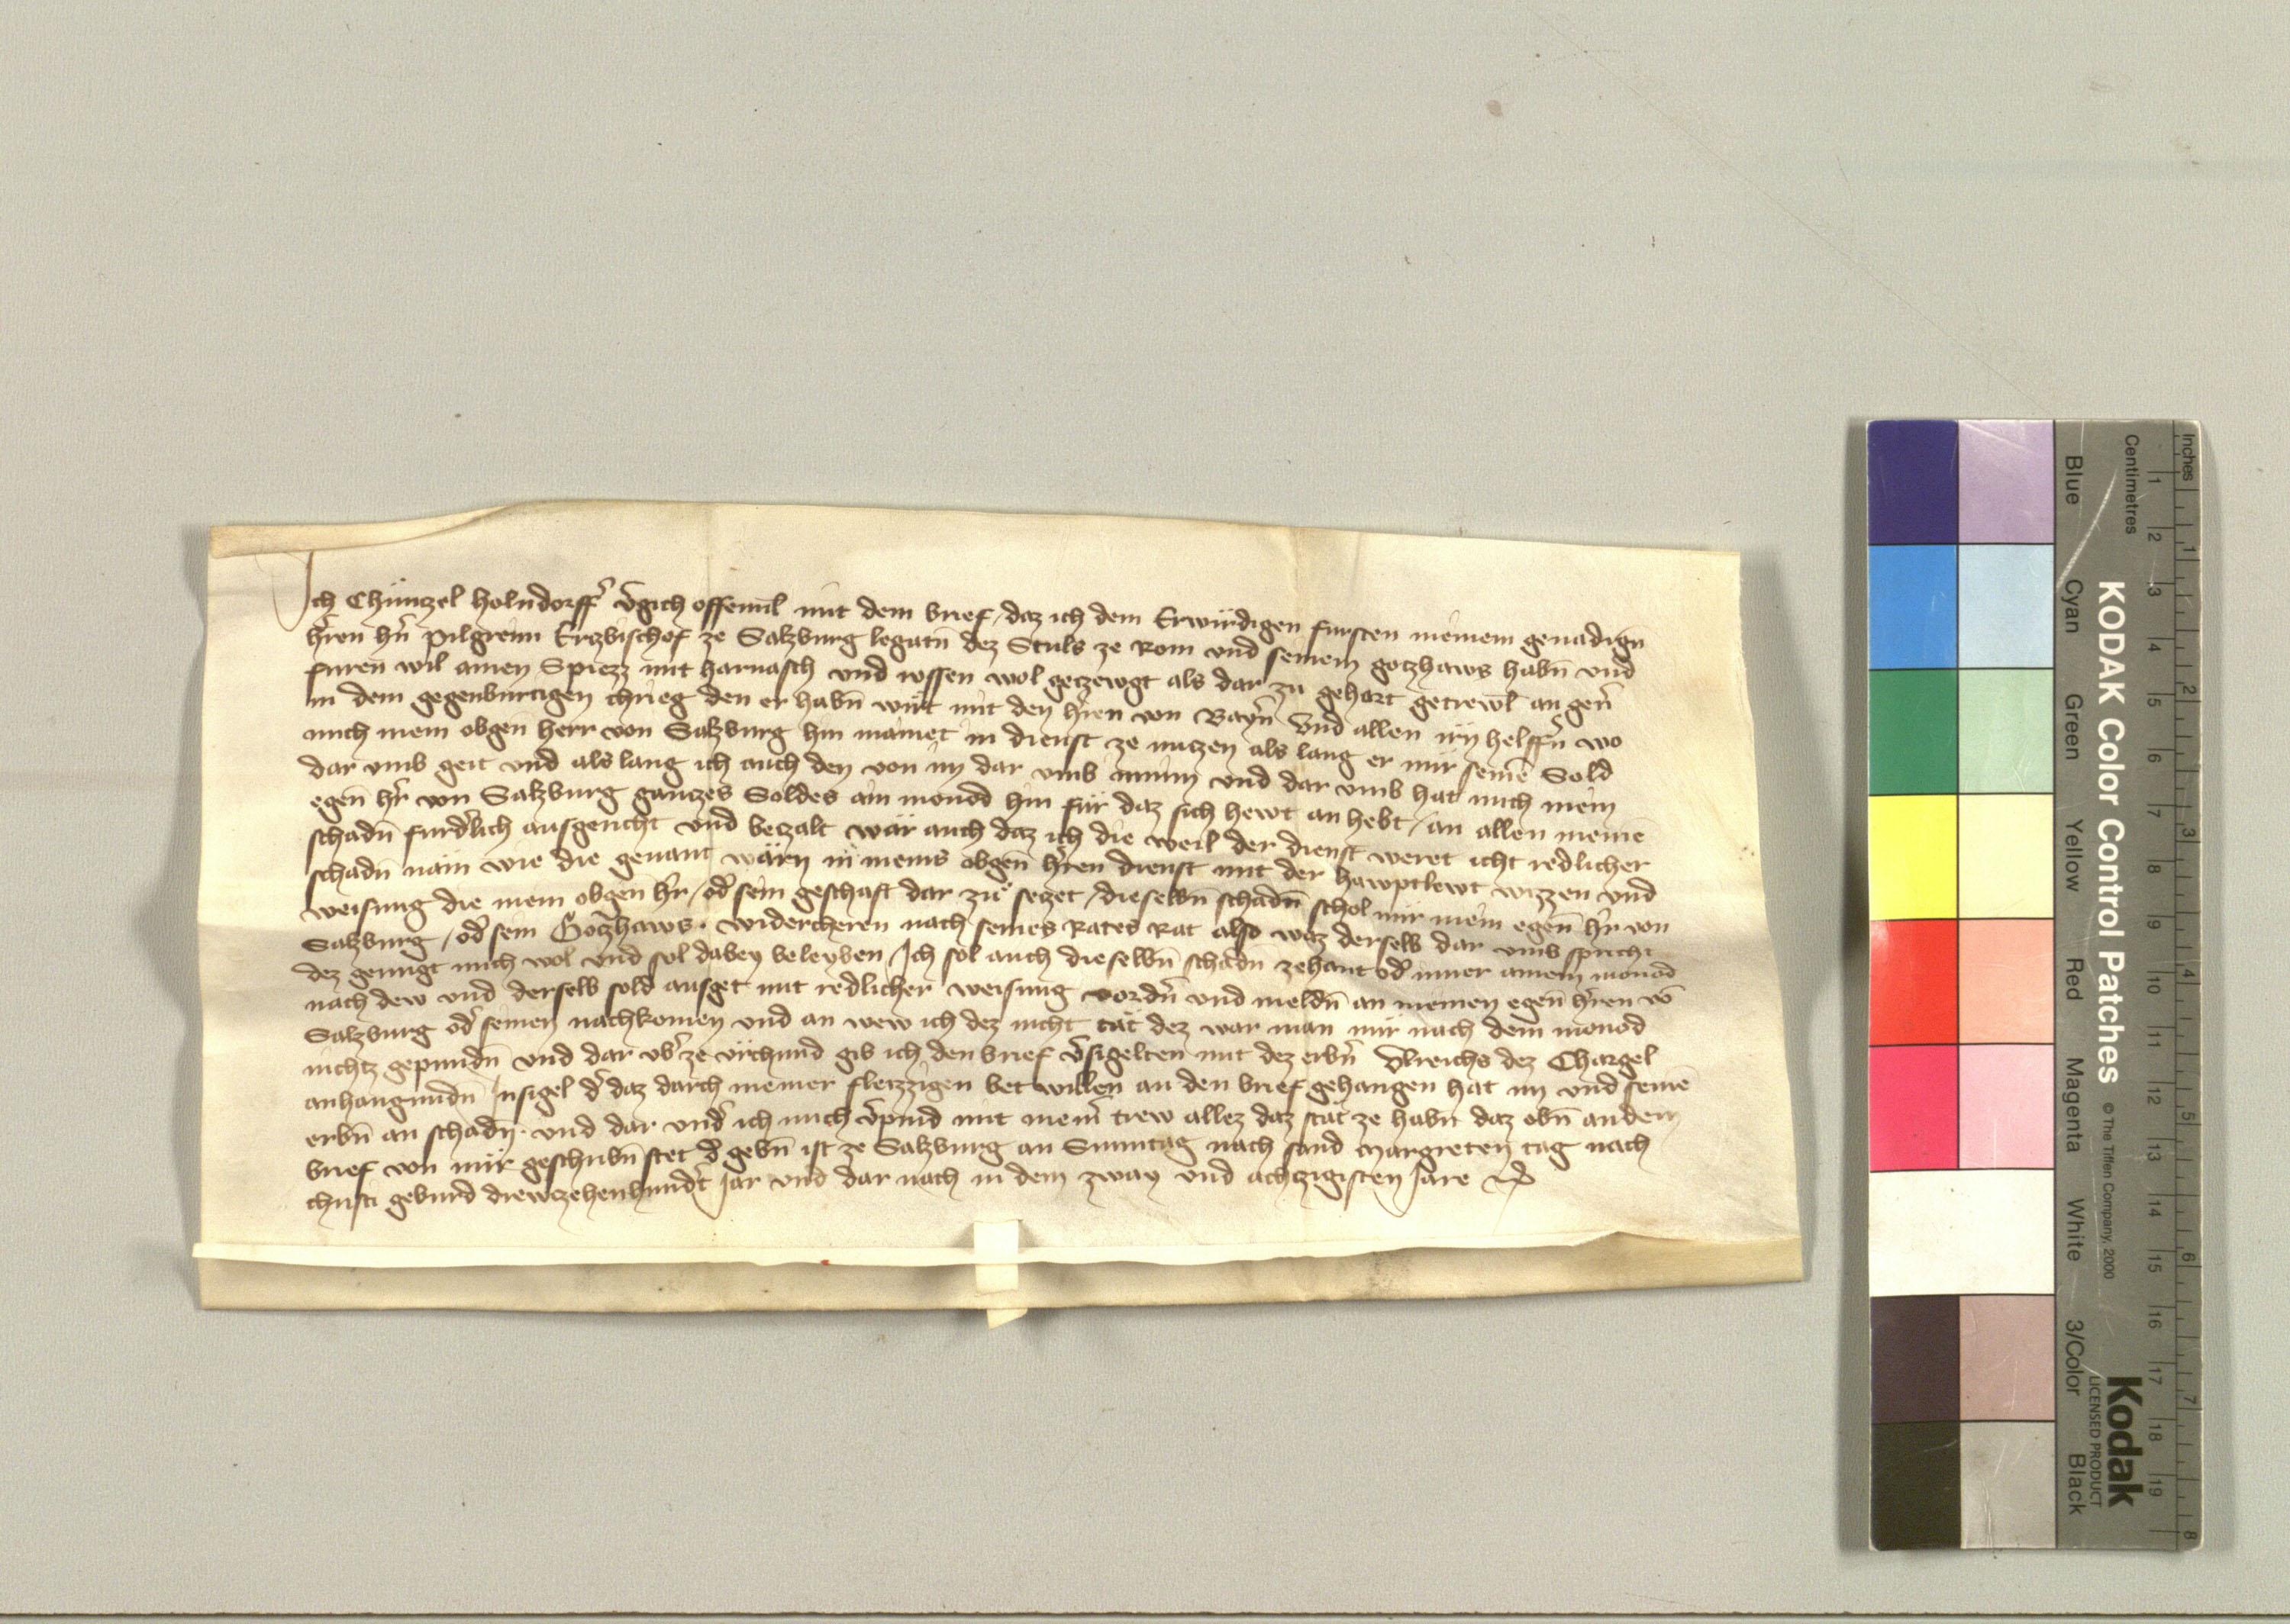 Ich Chünczel holndorff' v'gich offennl mit dem brief / daz ich dem Erwirdigen fursten meinem genadign̄
h'ren h'n pilgreim Erczbischof ze Salzburg legatn̄ dez Stuls ze Rom vnd seinem gotzhaws habn̄ vnd
furen wil ainen Spiezz mit harnasch vnd rossen wol geczewgt als dar zu gehort getrewl an gen'
in dem gegenburtigen chrieg den er habn̄ wirt mit den h'ren von Bayrn̄ vnd allen irn helffn̄ wo
mich mein obgen herr von Salzburg hin mainet in dienst ze nutzen als lang er mir seinē Sold
dar vmb geit vnd als lang ich auch den von im dar vmb nimm vnd dar vmb hat mich mein
egen̄ h'r von Salzburg ganczes Soldes ain monod hin für daz sich hewt an hebt / an allen meinē
schadn̄ furd'lich ausgericht vnd beczalt wär auch daz ich die weil der dienst weret icht redlicher
schadn̄ näm wie die genant wärn in meins obgen̄ h'ren dienst mit der hawptlewt wizzen vnd
weisung die mein obgen̄ h'r / od' sein geschaft dar zu seczet / dieselbn̄ schadn̄ schol mir mein egen̄ h'r von
Salzburg / od' sein Gotzhaws. widercheren nach seines Rates Rat also waz derselb dar vmb spricht
dez genugt mich wol vnd sol dabey beleyben / Ich sol auch dieselbn̄ schadn̄ zehant od' inner ainem monod
nach dew vnd derselb sold ausget mit redlicher weisung vordn̄ vnd meldn̄ an meinen egen̄ h'ren vō
Salzburg od' seinen nachkomen vnd an wew ich dez nicht tät dez war man mir nach dem monod
nichtz gepundn̄ vnd dar vb' ze vrchund gib ich den brief v'sigelten mit dez erbn̄ Vlreichs dez Chargel
anhangundn̄ Insigel d' daz durch meiner fleizzigen bet willen an den brief gehangen hat im vnd seinē
erbn̄ an schadn̄. vnd dar vnd' ich mich v'pind mit mein' trew allez daz stät ze habn̄ daz obn̄ an dem
brief von mir geschribn̄ stet d' gebn̄ ist ze Salzburg an Sunntag nach sand Margreten tag nach
christi geburd drewczehenhund't Jar vnd dar nach in dem zway vnd achtzigisten Jare
KODAK Color Control Patches
© The Tiffen Company, 2000
Kodak
LICENSED PRODUCT
Inches
Centimetres
1 2 3 4 5 6 7 8
1 2 3 4 5 6 7 8 9 10 11 12 13 14 15 16 17 18 19
Blue
Cyan
Green
Yellow
Red
Magenta
White
3/Color
Black